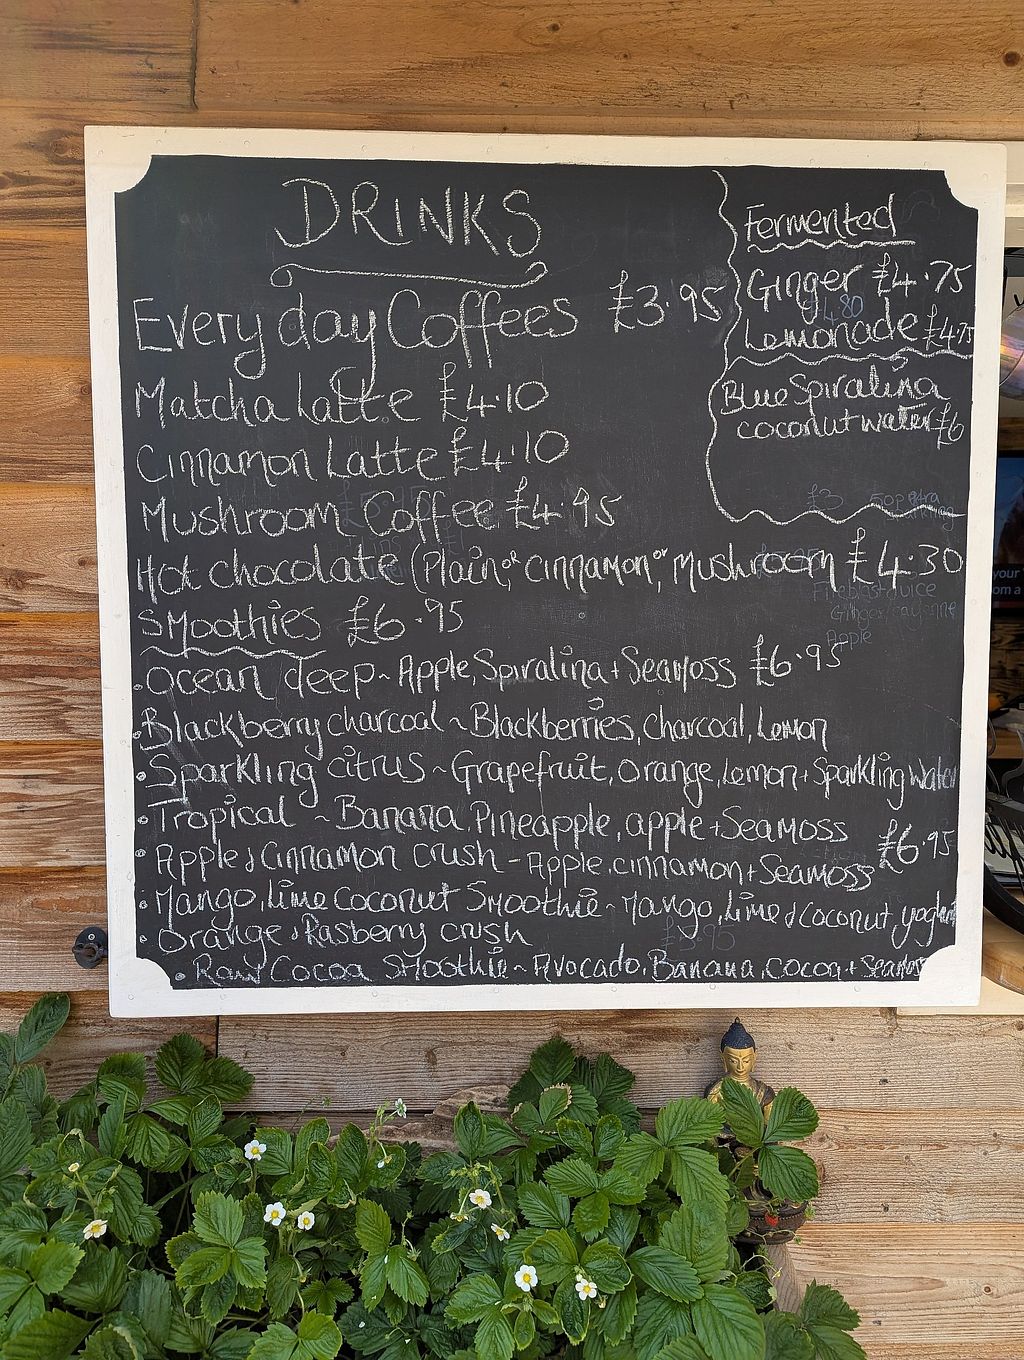 DRINKS
Everyday Coffees £3.95
Matcha Latte £4.10
Cinnamon Latte £4.10
Mushroom Coffee £4.95
Hot chocolate (Plain, or cinnamon, or Mushroom £4.30
Smoothies £6.95
• Ocean deep ~ Apple, Spiralina + Seamoss £6.95
• Blackberry charcoal ~ Blackberries, charcoal, Lemon
• Sparkling citrus ~ Grapefruit, Orange, Lemon + Sparkling water
• Tropical ~ Banana, Pineapple, apple + Seamoss
• Apple & Cinnamon crush - Apple, cinnamon + Seamoss £6.95
• Mango, Lime Coconut Smoothie ~ Mango, Lime & Coconut yoghurt
• Orange & Rasberry crush
• Raw Cocoa Smoothie ~ Avocado, Banana, cocoa + Seamoss
Fermented
Ginger £4.75
4.80
Lemonade £4.75
Blue Spiralina
coconut water £6
£3
Apple